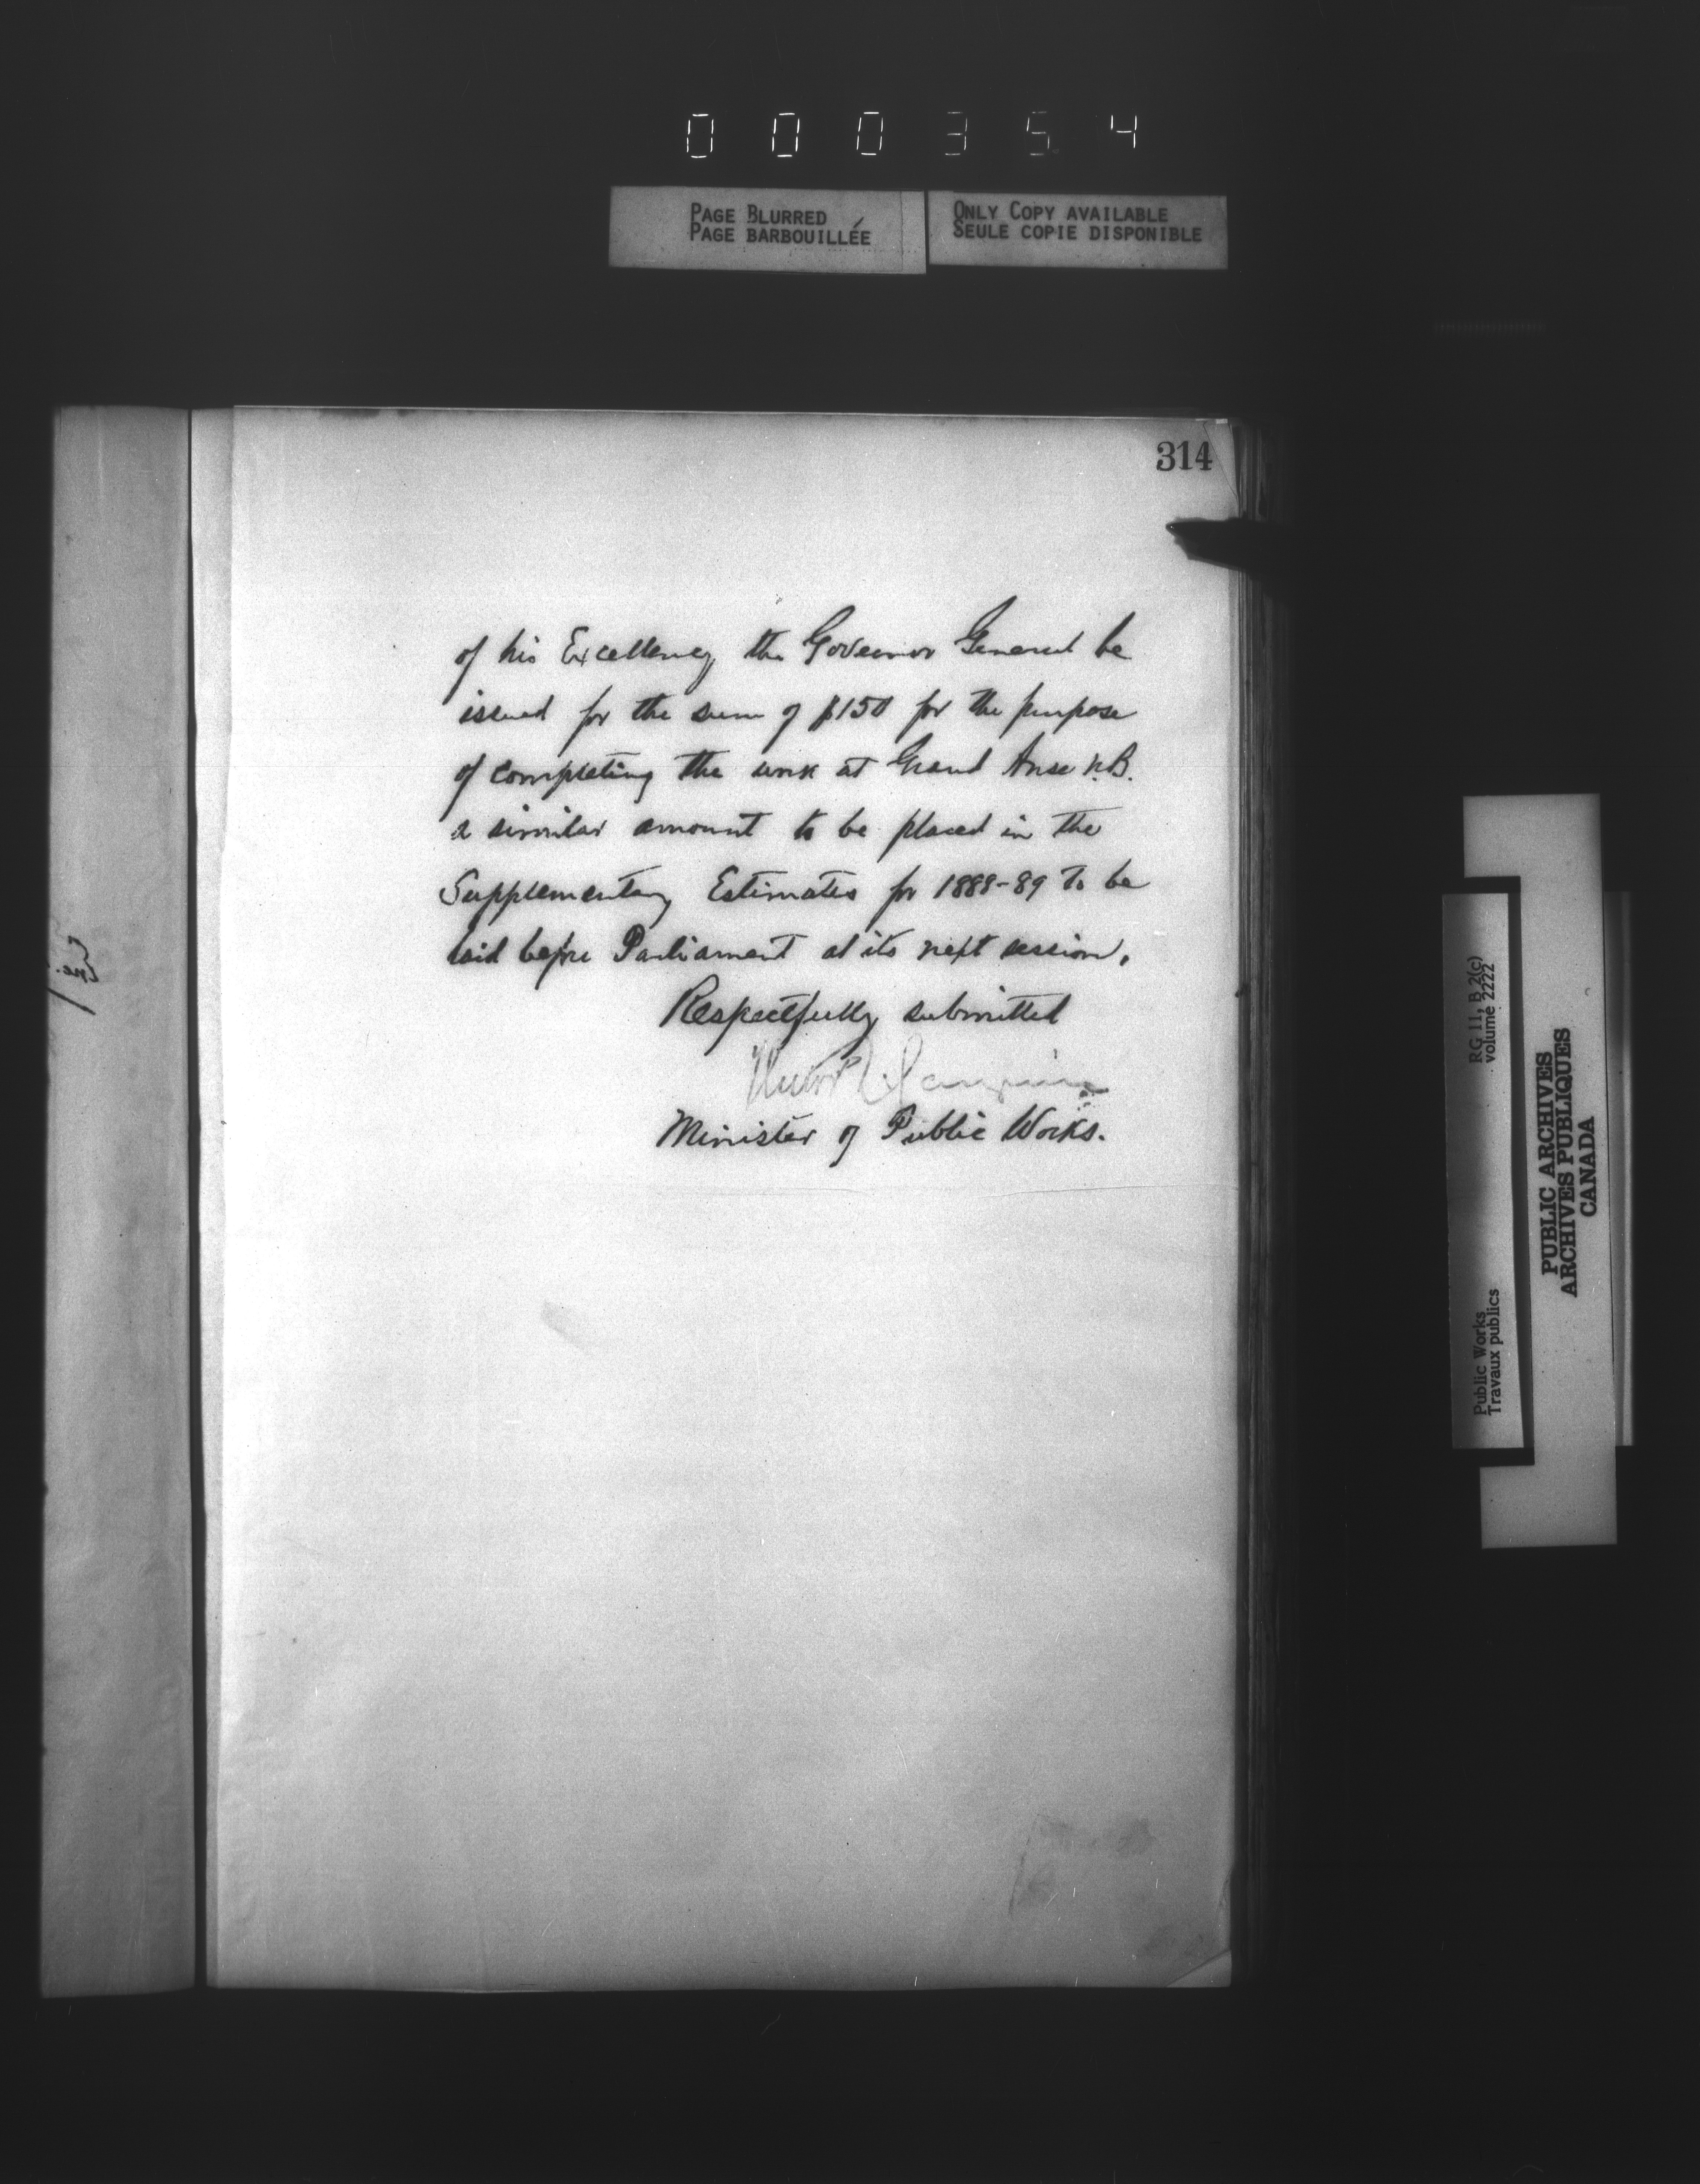 000354
PAGE BLURRED
PAGE BARBOUILLÉE
ONLY COPY AVAILABLE
SEULE COPIE DISPONIBLE
314
of his Excellency the Governor General be
issued for the sum of $150 for the purpose
of completing the work at Grand Anse N.B.
a similar amount to be placed in the
Supplementary Estimates for 1888-89 to be
laid before Parliament at its next session.
Respectfully submitted
Hector L. Langevin
Minister of Public Works.
RG 11, B 2(c)
volume 2222
Public Works
Travaux publics
PUBLIC ARCHIVES
ARCHIVES PUBLIQUES
CANADA